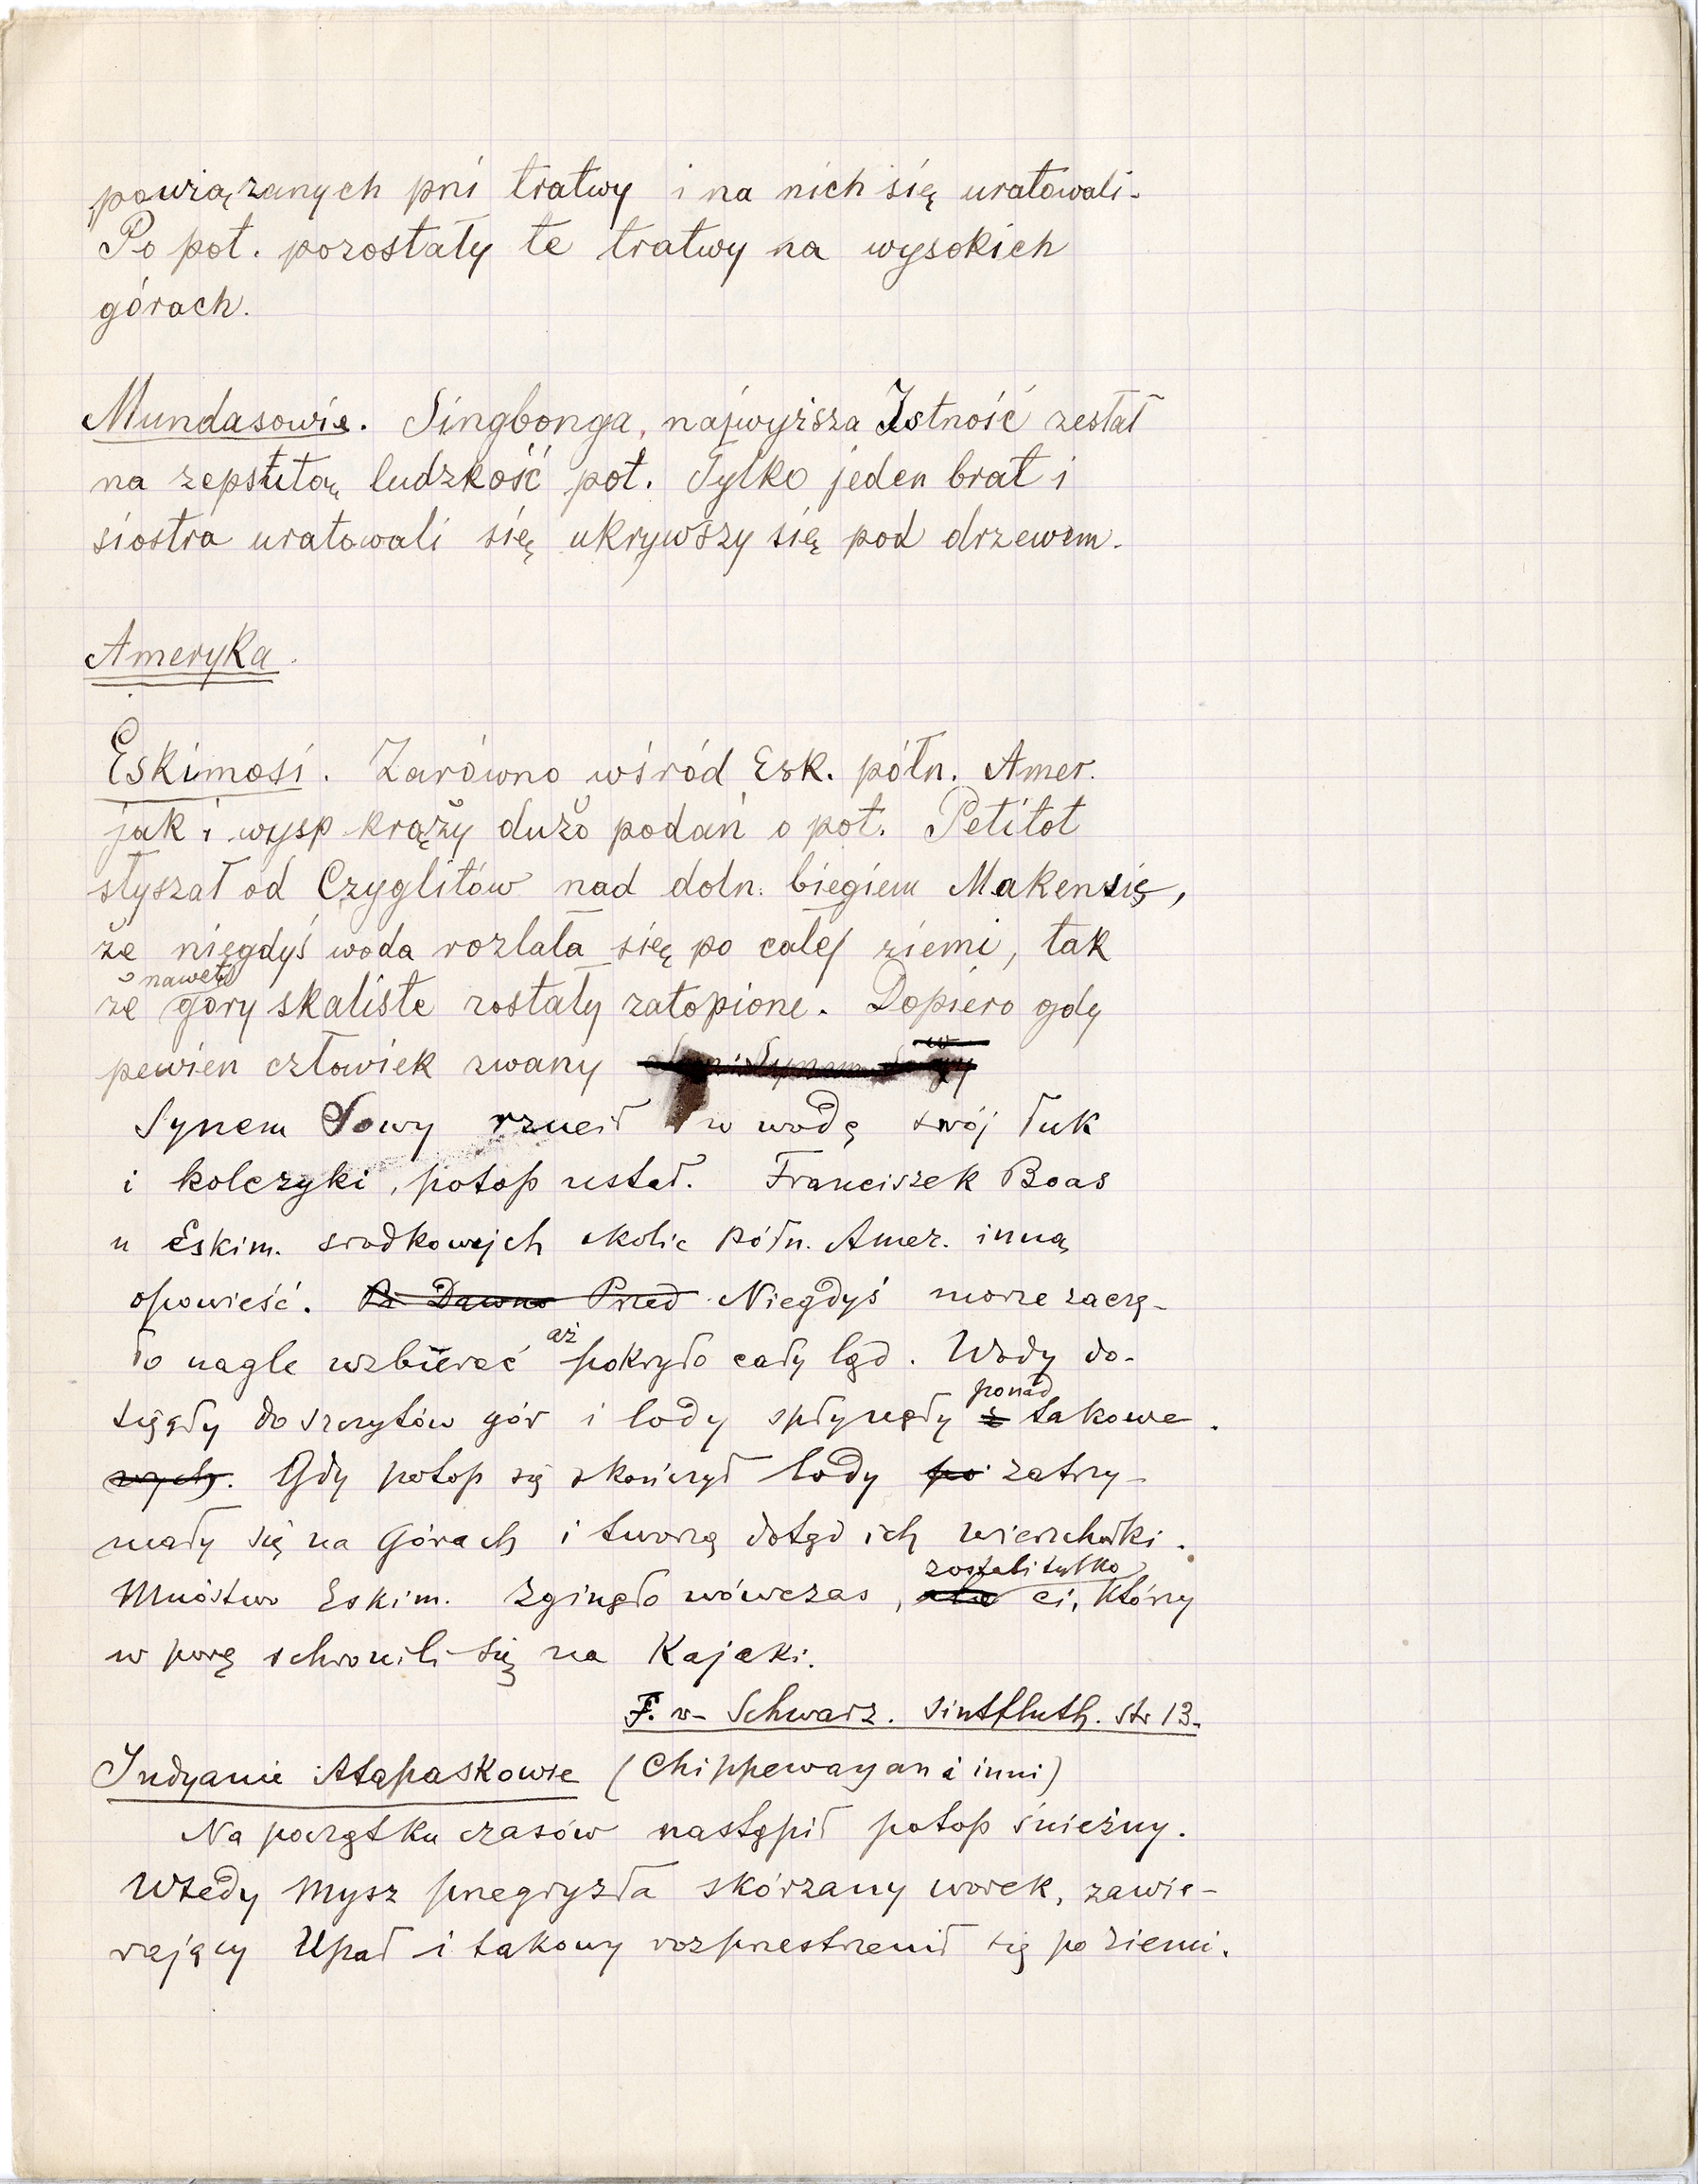 powiązanych pni tratwy i na nich się uratowali.
Po pot. pozostały te tratwy na wysokich
górach.
Mundasowie. Singbonga, najwyższa Istność zesłał
na zepsutą ludzkość pot. Tylko jeden brat i
siostra uratowali się ukrywszy się pod drzewem.
Ameryka.
Eskimosi. Zarówno wśród Esk. półn. Amer.
jak i wysp krąży dużo podań o pot. Petitot
słyszał od Czyglitów nad doln. biegiem Makenzię,
że niegdyś woda rozlała się po całej ziemi, tak
że nawet góry skaliste zostały zatopione. Dopiero gdy
pewien człowiek zwany
Synem Sowy rzucił w wodę swój łuk
i kolczyki, potop ustał. Franciszek Boas
u Eskim. srodkowych okolic półn. Amer. inną
opowieść. Dawno Przed Niegdyś morze zaczę-
ło nagle wzbierać aż pokryło cały ląd. Wody do-
sięgły do szczytów gór i lody spłynęły ponad takowe.
wych. Gdy potop się skończył lody po zatrzy-
mały się na Górach i tworzą dotąd ich wierzchołki.
Mnóstwo Eskim. zginęło wówczas, ale zostali tylko ci, którzy
w porę schronili się na Kajaki.
F. v. Schwarz. Sintfluth. str 13.
Indyanie Atapaskowie (Chippewayan i inni)
Na początku czasów nastąpił potop śnieżny.
Wtedy Mysz przegryzła skórzany worek, zawie-
rający Upał i takowy rozprzestrzenił się po ziemi.